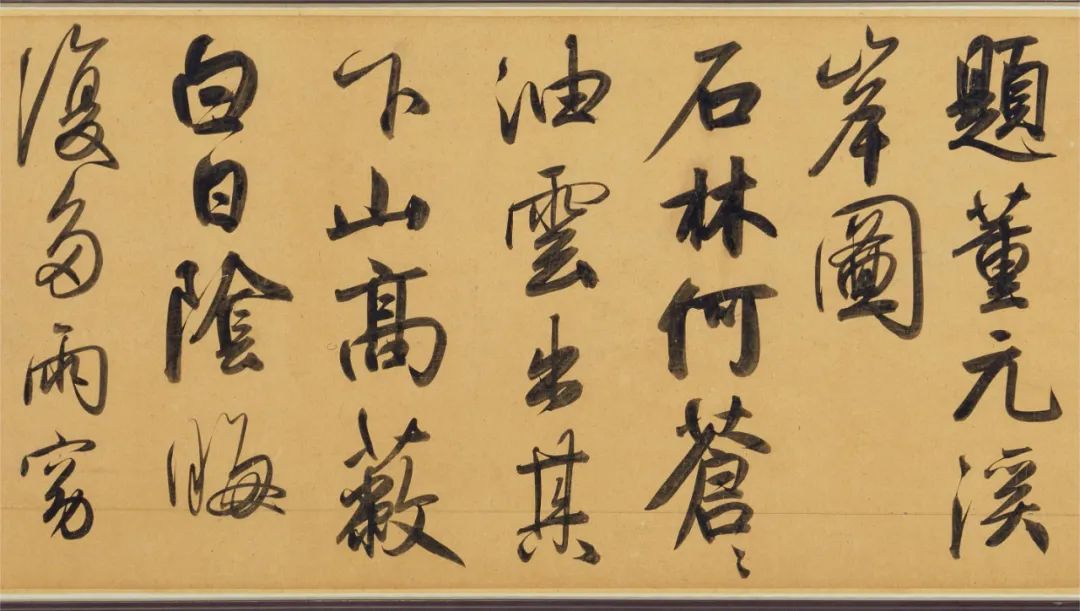 題董元溪
岸圖
石林何蒼〻
油雲出其
下山高蔽
白日陰晦
復多雨窈